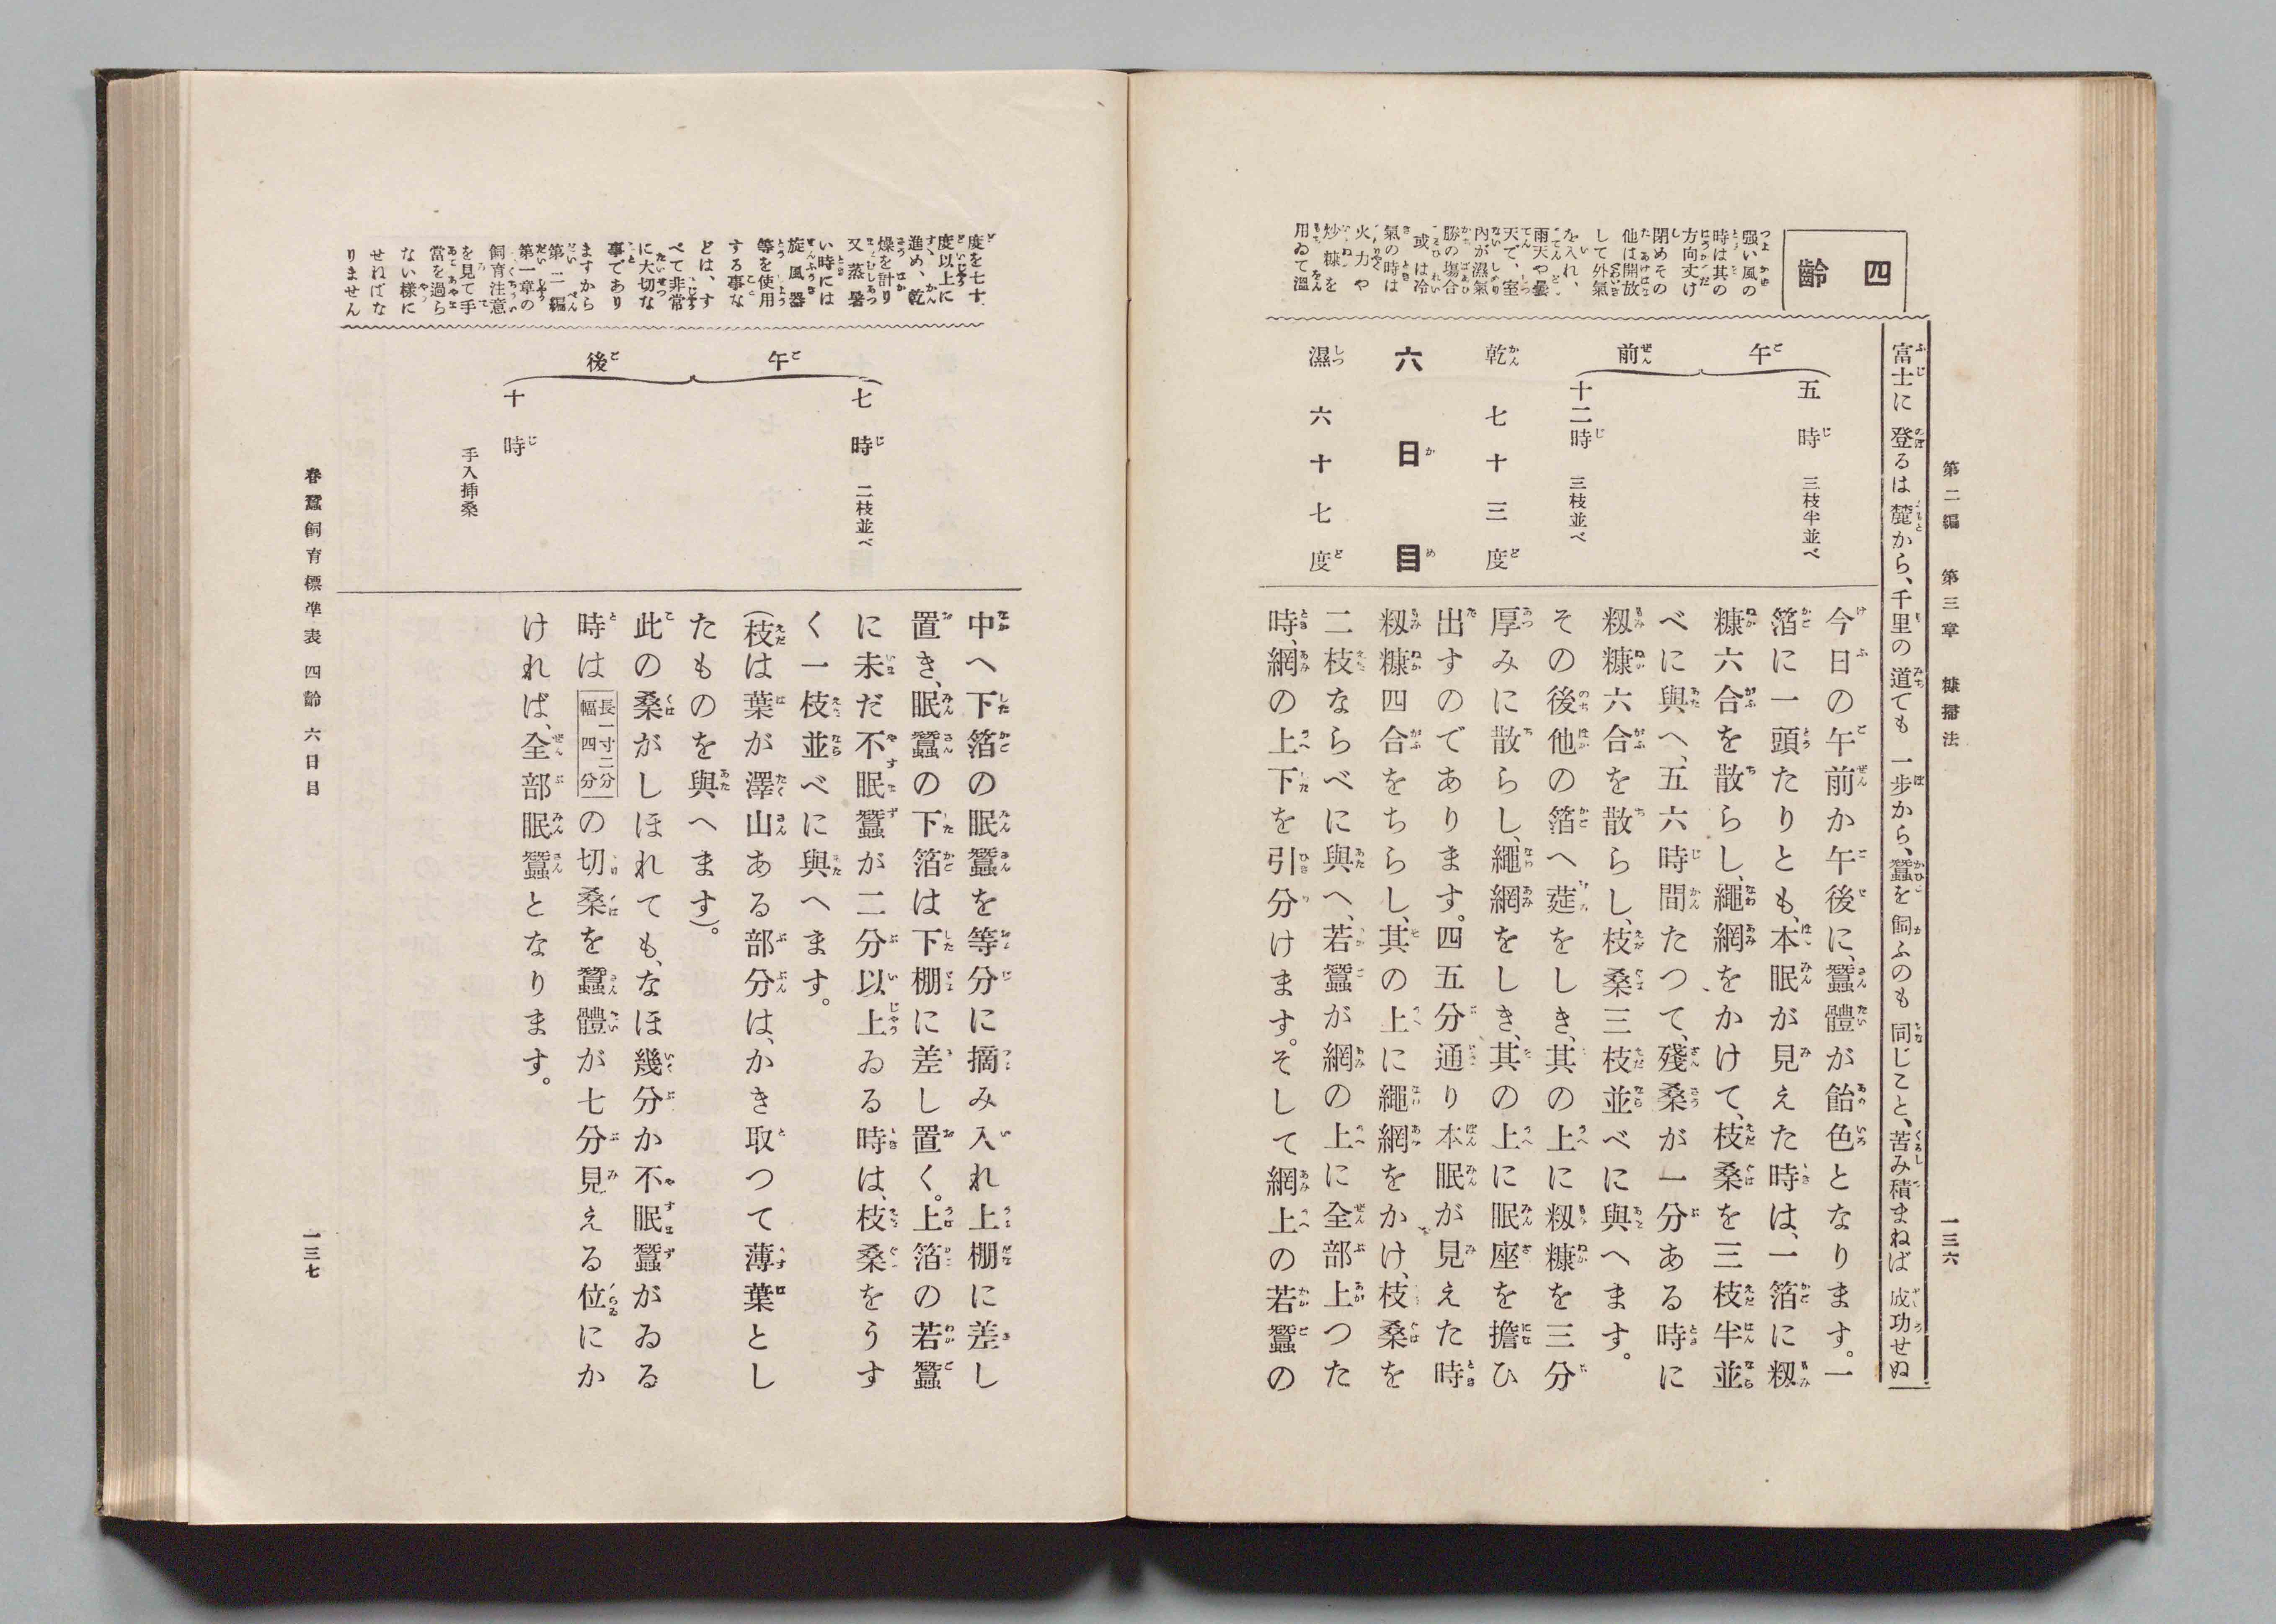 第二編　第三章　糠掃法
一三六
富士に登るは麓から、千里の道ても一歩から、蠶を飼ふのも同じこと、苦み積まねば成功せぬ
四齡
强い風の
時は其の
方向丈け
閉めその
他は開放
して外氣
を入れ、
雨天や曇
天で、室
內が濕氣
勝の塲合
或は冷
氣の時は
火力や
炒糠を
用ゐて溫
午前
五時　三枝半並べ
十二時　三枝並べ
乾　七十三度
六日目
濕　六十七度
今日の午前か午後に、蠶體が飴色となります。一
箔に一頭たりとも、本眠が見えた時は、一箔に籾
糠六合を散らし、繩網をかけて、枝桑を三枝半並
べに與へ、五六時間たつて、殘桑が一分ある時に
籾糠六合を散らし、枝桑三枝並べに與へます。
その後他の箔へ莚をしき、其の上に籾糠を三分
厚みに散らし、繩網をしき、其の上に眠座を擔ひ
出すのであります。四五分通り本眠が見えた時
籾糠四合をちらし、其の上に繩網をかけ、枝桑を
二枝ならべに與へ、若蠶が網の上に全部上つた
時、網の上下を引分けます。そして網上の若蠶の
度を七十
度以上に
進め、乾
燥を計り
又蒸暑
い時には
旋風器
等を使用
する事な
どは、す
べて非常
に大切な
事であり
ますから
第二編
第一章の
飼育注意
を見て手
當を過ら
ない樣に
せねばな
りません
午後
七時　二枝並べ
十時
手入揷桑
中へ下箔の眠蠶を等分に摘み入れ上棚に差し
置き、眠蠶の下箔は下棚に差し置く。上箔の若蠶
に未だ不眠蠶が二分以上ゐる時は、枝桑をうす
く一枝並べに與へます。
(枝は葉が澤山ある部分は、かき取つて薄葉とし
たものを與へます)。
此の桑がしほれても、なほ幾分か不眠蠶がゐる
時は長一寸二分幅四分の切桑を蠶體が七分見える位にか
ければ、全部眠蠶となります。
春蠶飼育標準表　四齡　六日目
一三七